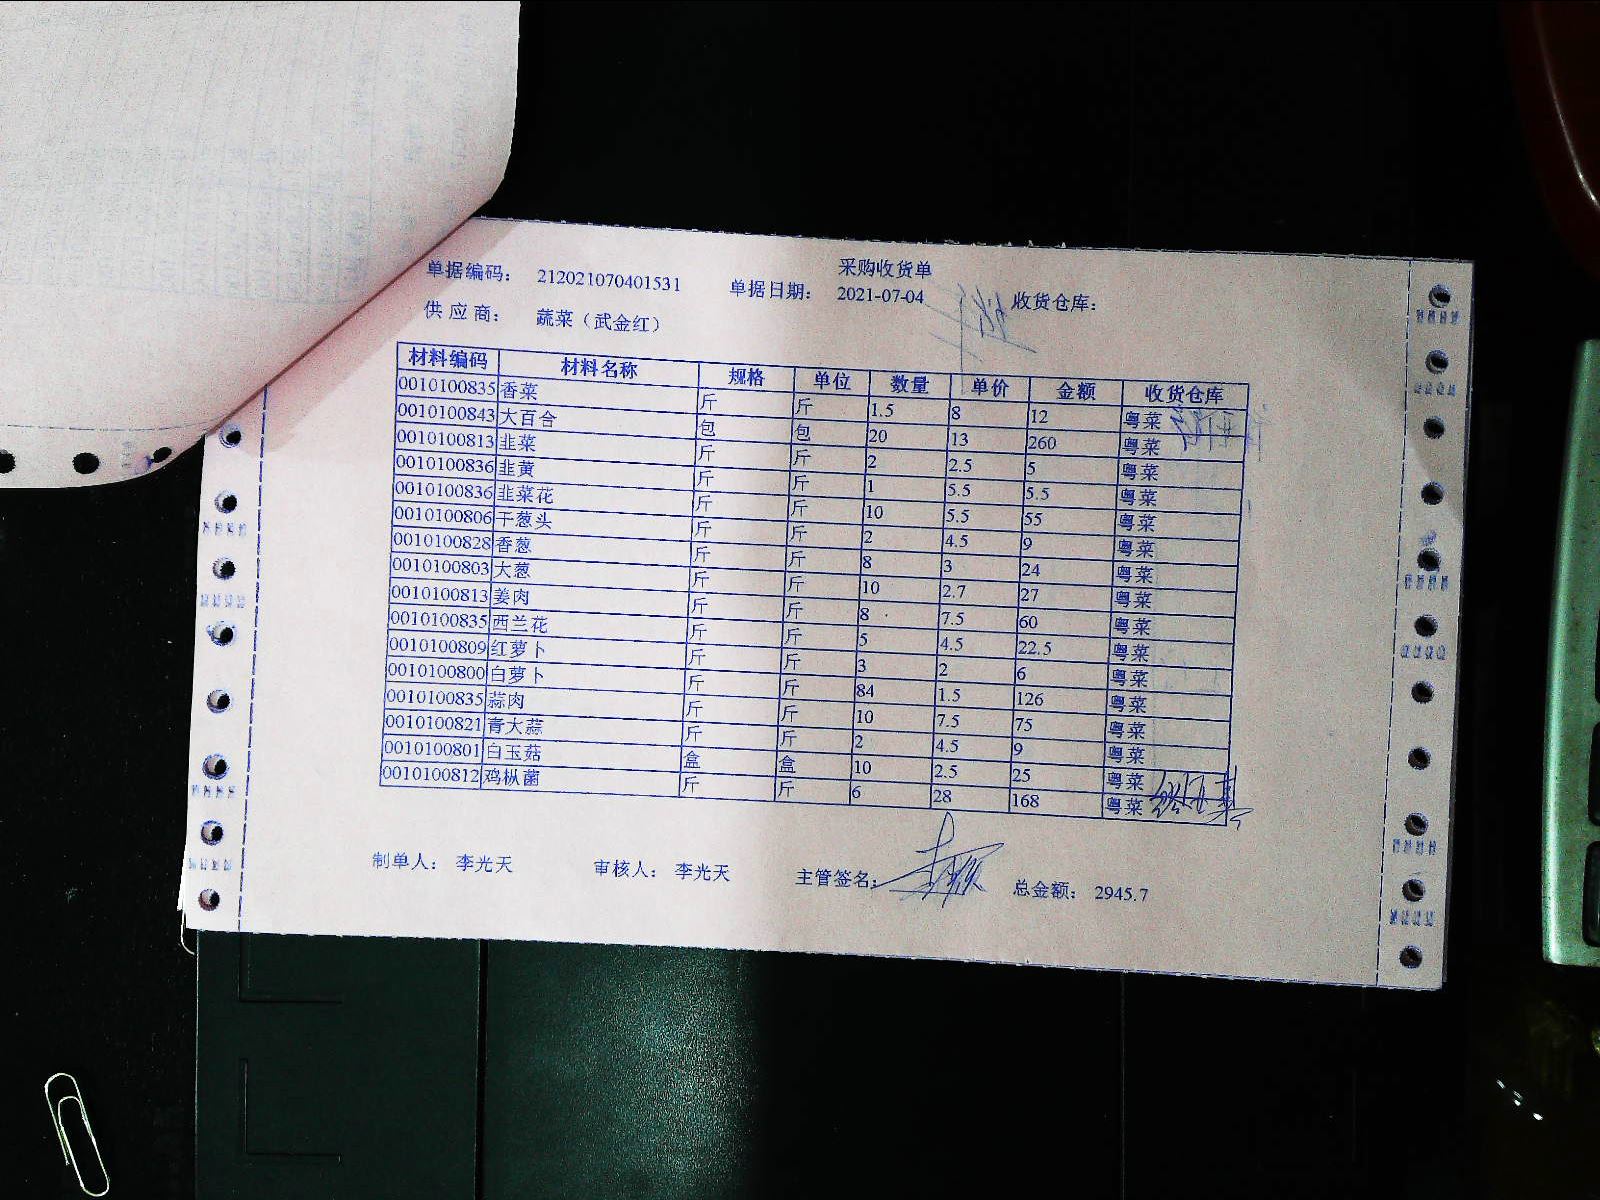 采购收货单
单据编码： 212021070401531 单据日期： 2021-07-04 收货仓库：
供应商： 蔬菜（武金红）
材料编码 材料名称 规格 单位 数量 单价 金额 收货仓库
0010100835 香菜 斤 斤 1.5 8 12 粤菜
0010100843 大百合 包 包 20 13 260 粤菜
0010100813 韭菜 斤 斤 2 2.5 5 粤菜
0010100836 韭黄 斤 斤 1 5.5 5.5 粤菜
0010100836 韭菜花 斤 斤 10 5.5 55 粤菜
0010100806 干葱头 斤 斤 2 4.5 9 粤菜
0010100828 香葱 斤 斤 8 3 24 粤菜
0010100803 大葱 斤 斤 10 2.7 27 粤菜
0010100813 姜肉 斤 斤 8 7.5 60 粤菜
0010100835 西兰花 斤 斤 5 4.5 22.5 粤菜
0010100809 红萝卜 斤 斤 3 2 6 粤菜
0010100800 白萝卜 斤 斤 84 1.5 126 粤菜
0010100835 蒜肉 斤 斤 10 7.5 75 粤菜
0010100821 青大蒜 斤 斤 2 4.5 9 粤菜
0010100801 白玉菇 盒 盒 10 2.5 25 粤菜
0010100812 鸡枞菌 斤 斤 6 28 168 粤菜
制单人： 李光天 审核人： 李光天 主管签名： 总金额： 2945.7